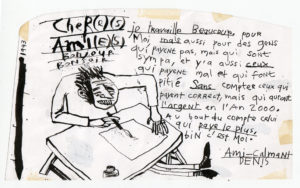 CHER(E)(S)
AMI(E)(S)
BONJOUR
BONSOIR
je travaille Beaucoup pour
Moi mais aussi pour des gens
qui payent pas, mais qui sont
sympa, et y'a aussi ceux
qui payent mal et qui font
pitié. Sans compter ceux qui
payent correct, mais qui auront
l'argent en l'An 2000.
Au bout du compte celui
qui paye le plus,
biN c'est Moi.
Ami-Calmant
DENIS